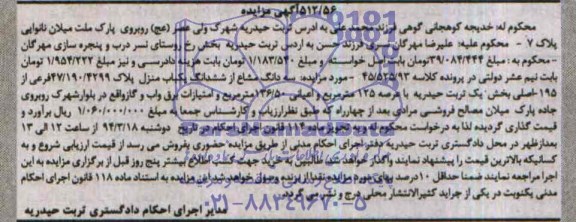 ۵۱۲/۵۶ آگهی مزایده
محکوم له: خدیجه کوهجانی گوهی فرزند علی به آدرس تربت حیدریه شهرک ولی عصر (عج) روبروی پارک ملت میلان نانوایی
پلاک ۷ - محکوم علیه: علیرضا مهرگان فرزند حسن به آدرس تربت حیدریه بخش رخ روستای نسر درب و پنجره سازی مهرگان
- محکوم به: مبلغ ۳۹/۰۸۴/۴۴۴ تومان بابت اصل خواسته و مبلغ ۱/۱۸۳/۵۳۰ تومان بابت هزینه دادرسی و نیز مبلغ ۱/۹۵۴/۲۲۲ تومان
بابت نیم عشر دولتی در پرونده کلاسه - مورد مزایده: سه دانگ مشاع از ششدانگ یکباب منزل پلاک فرعی از
۱۹۵- اصلی بخش یک تربت حیدریه با عرصه ۱۲۵ مترمربع و اعیانی ۱۳۶/۵۰ مترمربع و امتیازات برق وآب و گازواقع در بلوارشهرک روبروی
جاده پارک میلان مصالح فروشی مرادی بعد از چهارراه که طبق نظرارزیاب و کارشناس جمعا به مبلغ ۱/۰۶۰/۰۰۰/۰۰۰ ریال برآورد و
قیمت گذاری گردیده لذا به درخواست محکوم له و به تجویز ماده ۱۱۴ قانون اجرای احکام در تاریخ دوشنبه ۹۴/۳/۱۸ از ساعت ۱۲ الی ۱۳
بعدازظهر در محل دادگستری تربت حیدریه دفتر اجرای احکام مدنی از طریق مزایده حضوری بفروش می رسد از قیمت ارزیابی شروع و به
کسانیکه بالاترین قیمت را پیشنهاد نمایند واگذار خواهد شد طالبین به خرید جهت کسب اطلاع بیشتر پنج روز قبل از برگزاری مزایده به این
اجرا مراجعه نمایند ضمنا حداقل ۱۰ درصد بهای مورد مزایده نقدا از برنده وصول خواهد شد این مزایده به استناد ماده ۱۱۸ قانون اجرای احکام
مدنی یکنوبت در یکی از جراید کثیرالانتشار محلی درج و نشر می گردد.
مدیر اجرای احکام دادگستری تربت حیدریه
۰۲۱-۸۸۳۴۹۶۷۰-۵